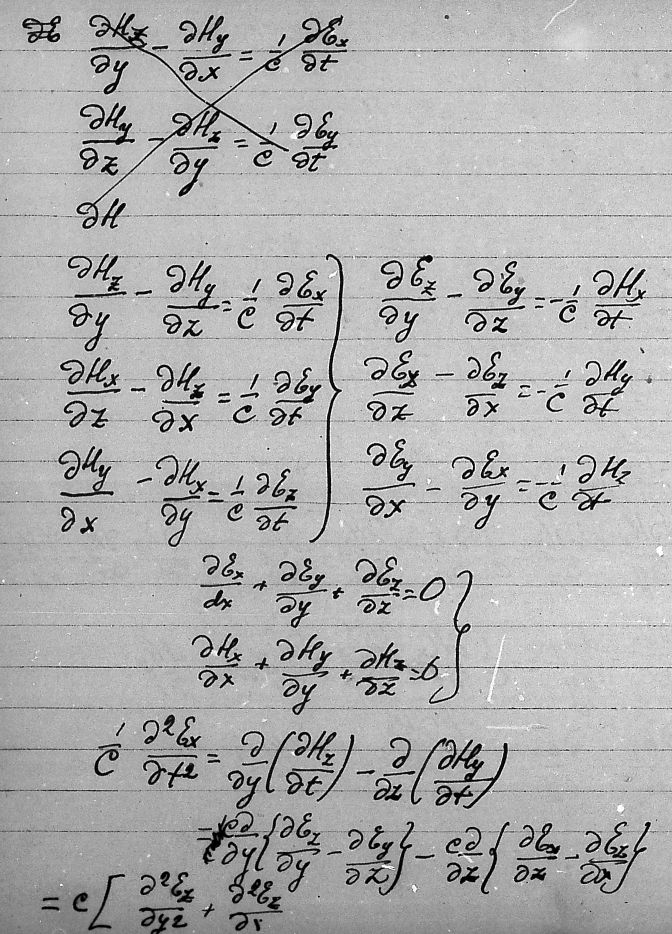 ∂Hz/∂y - ∂Hy/∂x = 1/c ∂Ex/∂t
∂Hy/∂z - ∂Hz/∂y = 1/c ∂Ey/∂t
∂H
∂Hz/∂y - ∂Hy/∂z = 1/c ∂Ex/∂t } ∂Ez/∂y - ∂Ey/∂z = -1/c ∂Hx/∂t
∂Hx/∂z - ∂Hz/∂x = 1/c ∂Ey/∂t } ∂Ex/∂z - ∂Ez/∂x = -1/c ∂Hy/∂t
∂Hy/∂x - ∂Hx/∂y = 1/c ∂Ez/∂t } ∂Ey/∂x - ∂Ex/∂y = -1/c ∂Hz/∂t
∂Ex/dx + ∂Ey/∂y + ∂Ez/∂z = 0 }
∂Hx/∂x + ∂Hy/∂y + ∂Hz/∂z = 0 }
1/c ∂²Ex/∂t² = ∂/∂y (∂Hz/∂t) - ∂/∂z (∂Hy/∂t)
= c∂/∂y {∂Ez/∂y - ∂Ey/∂z} - c∂/∂z {∂Ex/∂z - ∂Ez/∂x}
= c [ ∂²Ez/∂y² + ∂²Ez/∂x